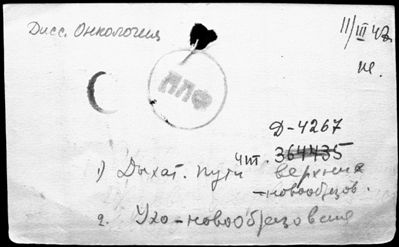 Дисс. Онкология
11/III 47г.
не.
ППФ
Д-4267
чит. 364435
1) Дыхат. пути верхния
-новообразов.
2. Ухо-новообразование